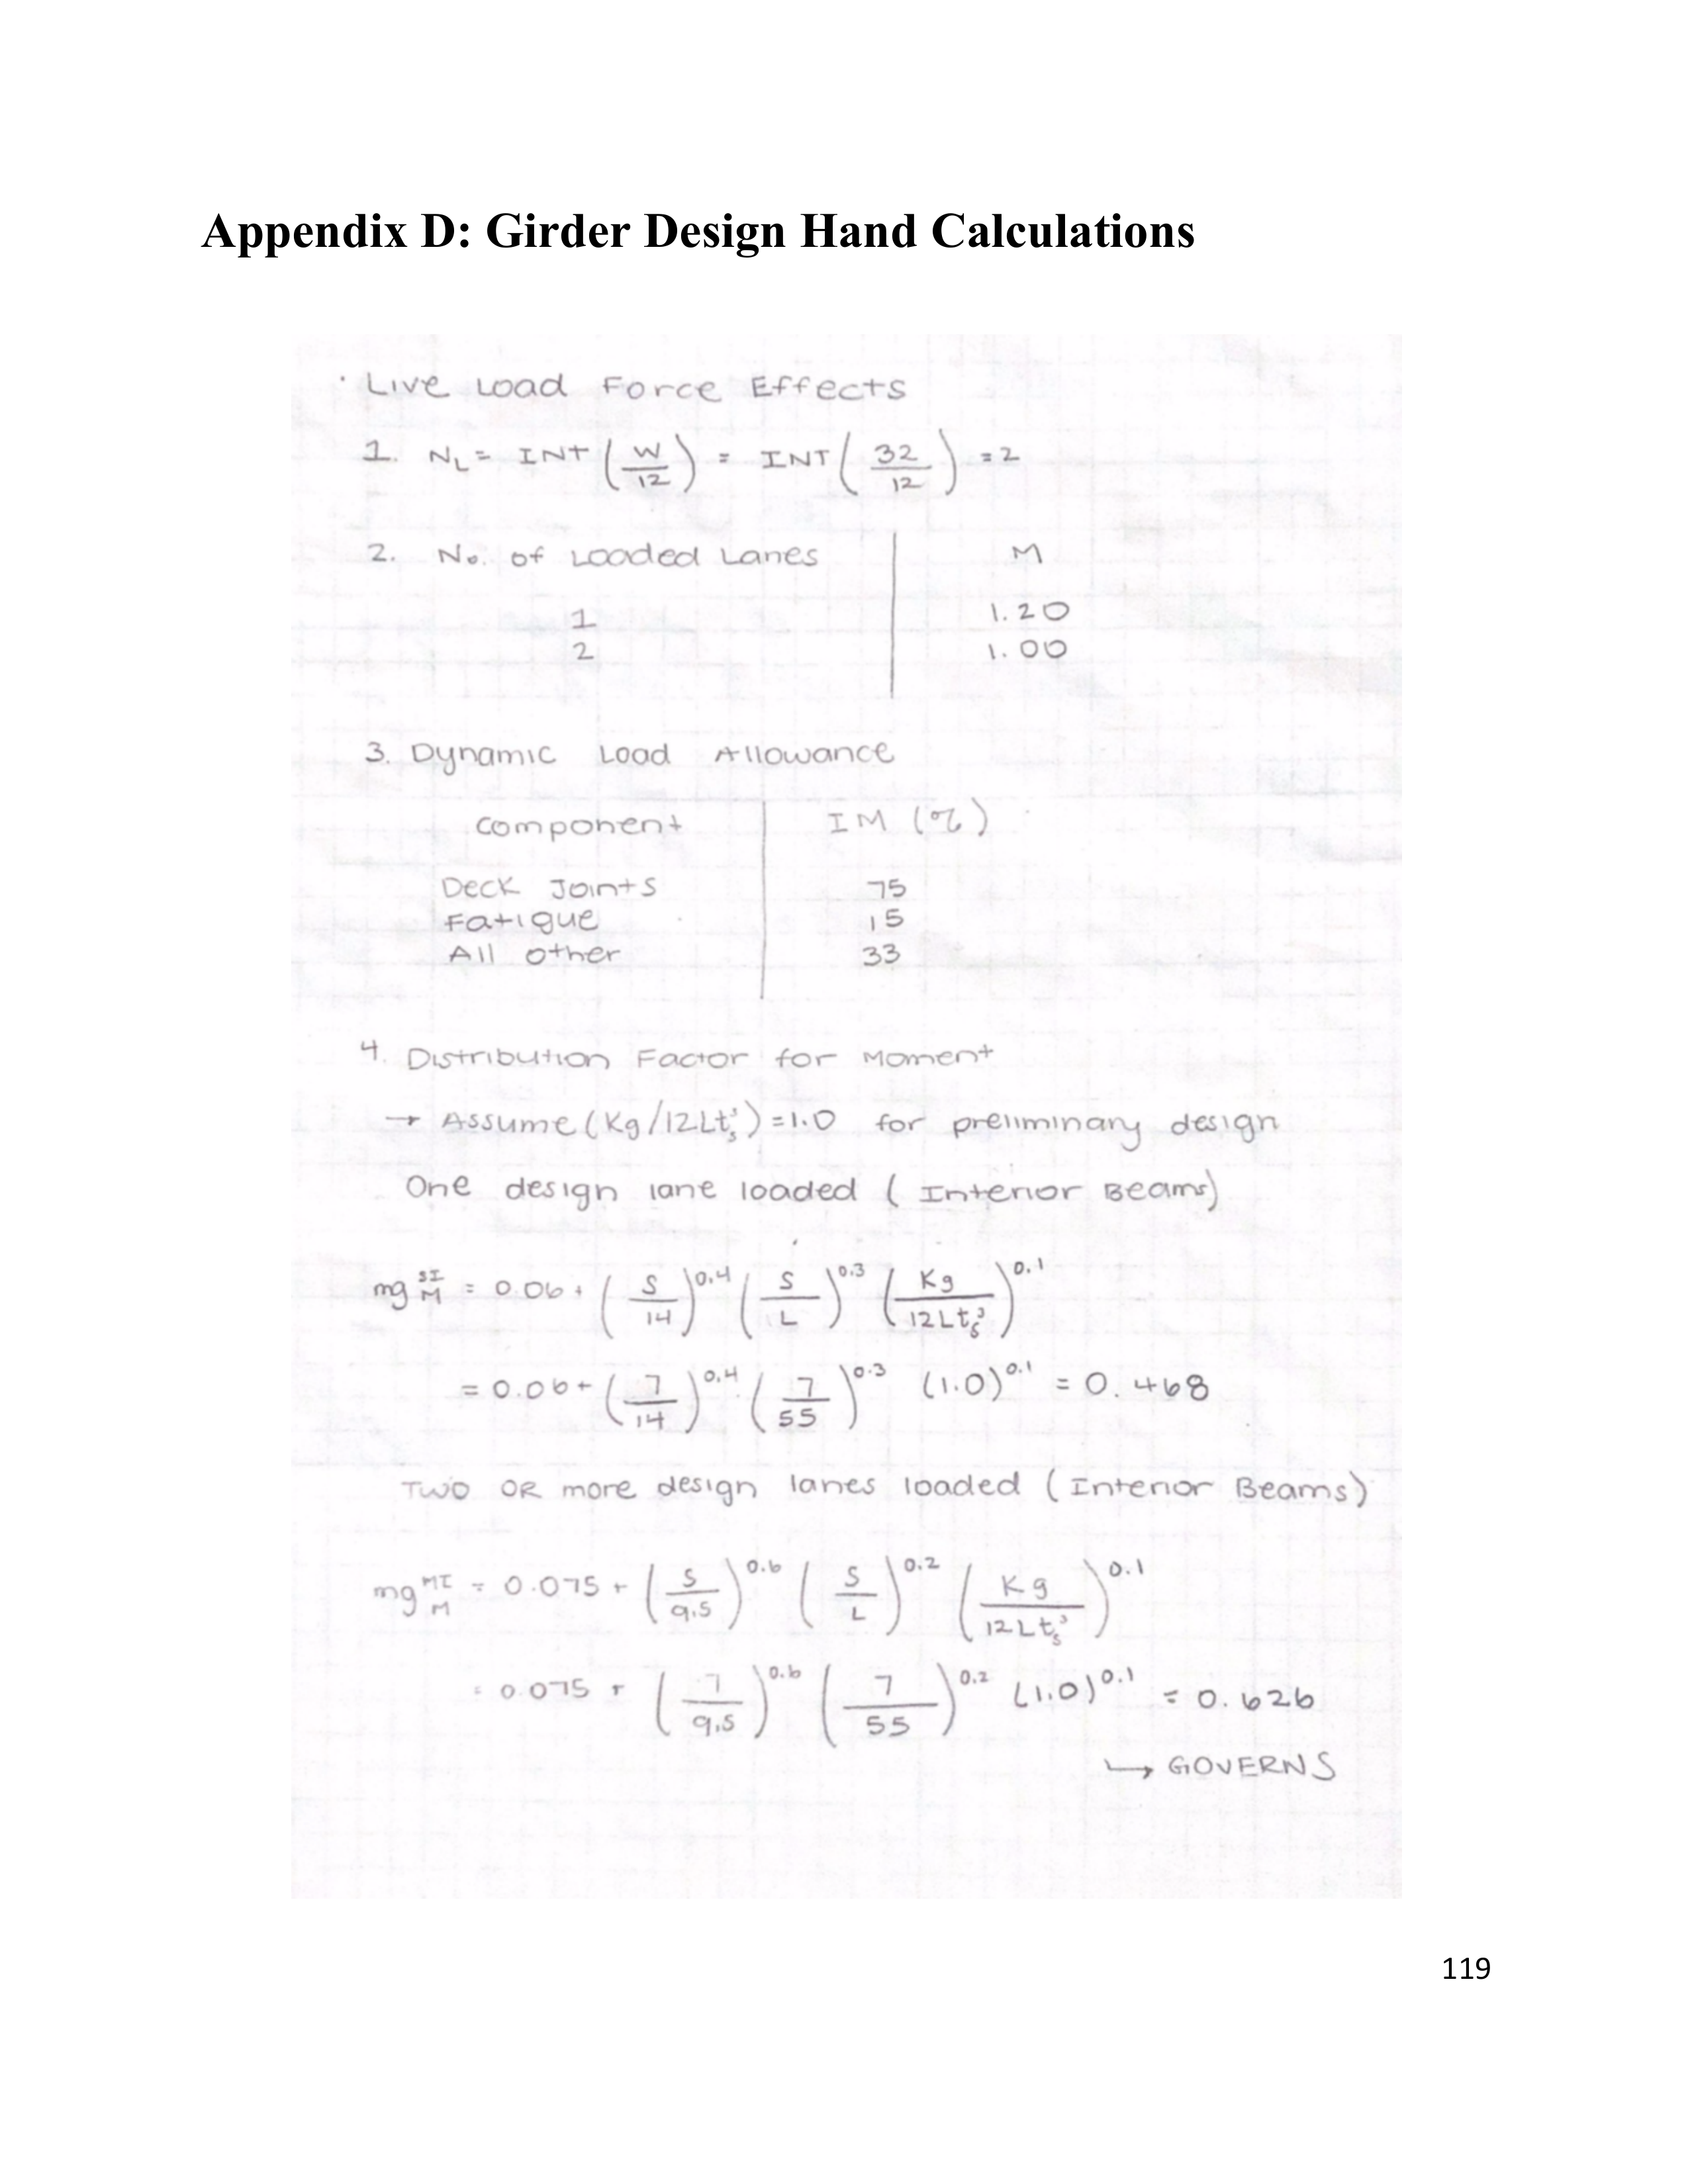 Appendix D: Girder Design Hand Calculations
· Live Load Force Effects
1. N_L = INT (W/12) = INT (32/12) = 2
2. No. of Loaded Lanes | M
1 | 1.20
2 | 1.00
3. Dynamic Load Allowance
Component | IM (%)
Deck Joints | 75
Fatigue | 15
All other | 33
4. Distribution Factor for Moment
→ Assume (Kg/12Lt_s³) = 1.0 for preliminary design
One design lane loaded (Interior Beams)
mg_M^SI = 0.06 + (S/14)^0.4 (S/L)^0.3 (Kg/12Lt_s³)^0.1
= 0.06 + (7/14)^0.4 (7/55)^0.3 (1.0)^0.1 = 0.468
TWO OR more design lanes loaded (Interior Beams)
mg_M^MI = 0.075 + (S/9.5)^0.6 (S/L)^0.2 (Kg/12Lt_s³)^0.1
= 0.075 + (7/9.5)^0.6 (7/55)^0.2 (1.0)^0.1 = 0.626
↳ GOVERNS
119